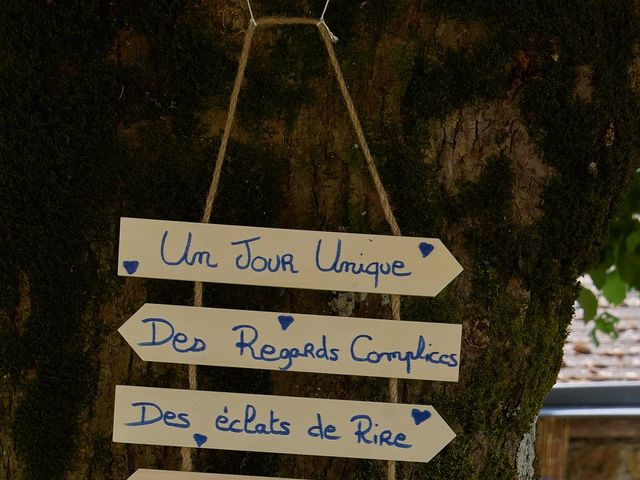 Un Jour Unique
Des Regards Complices
Des éclats de Rire